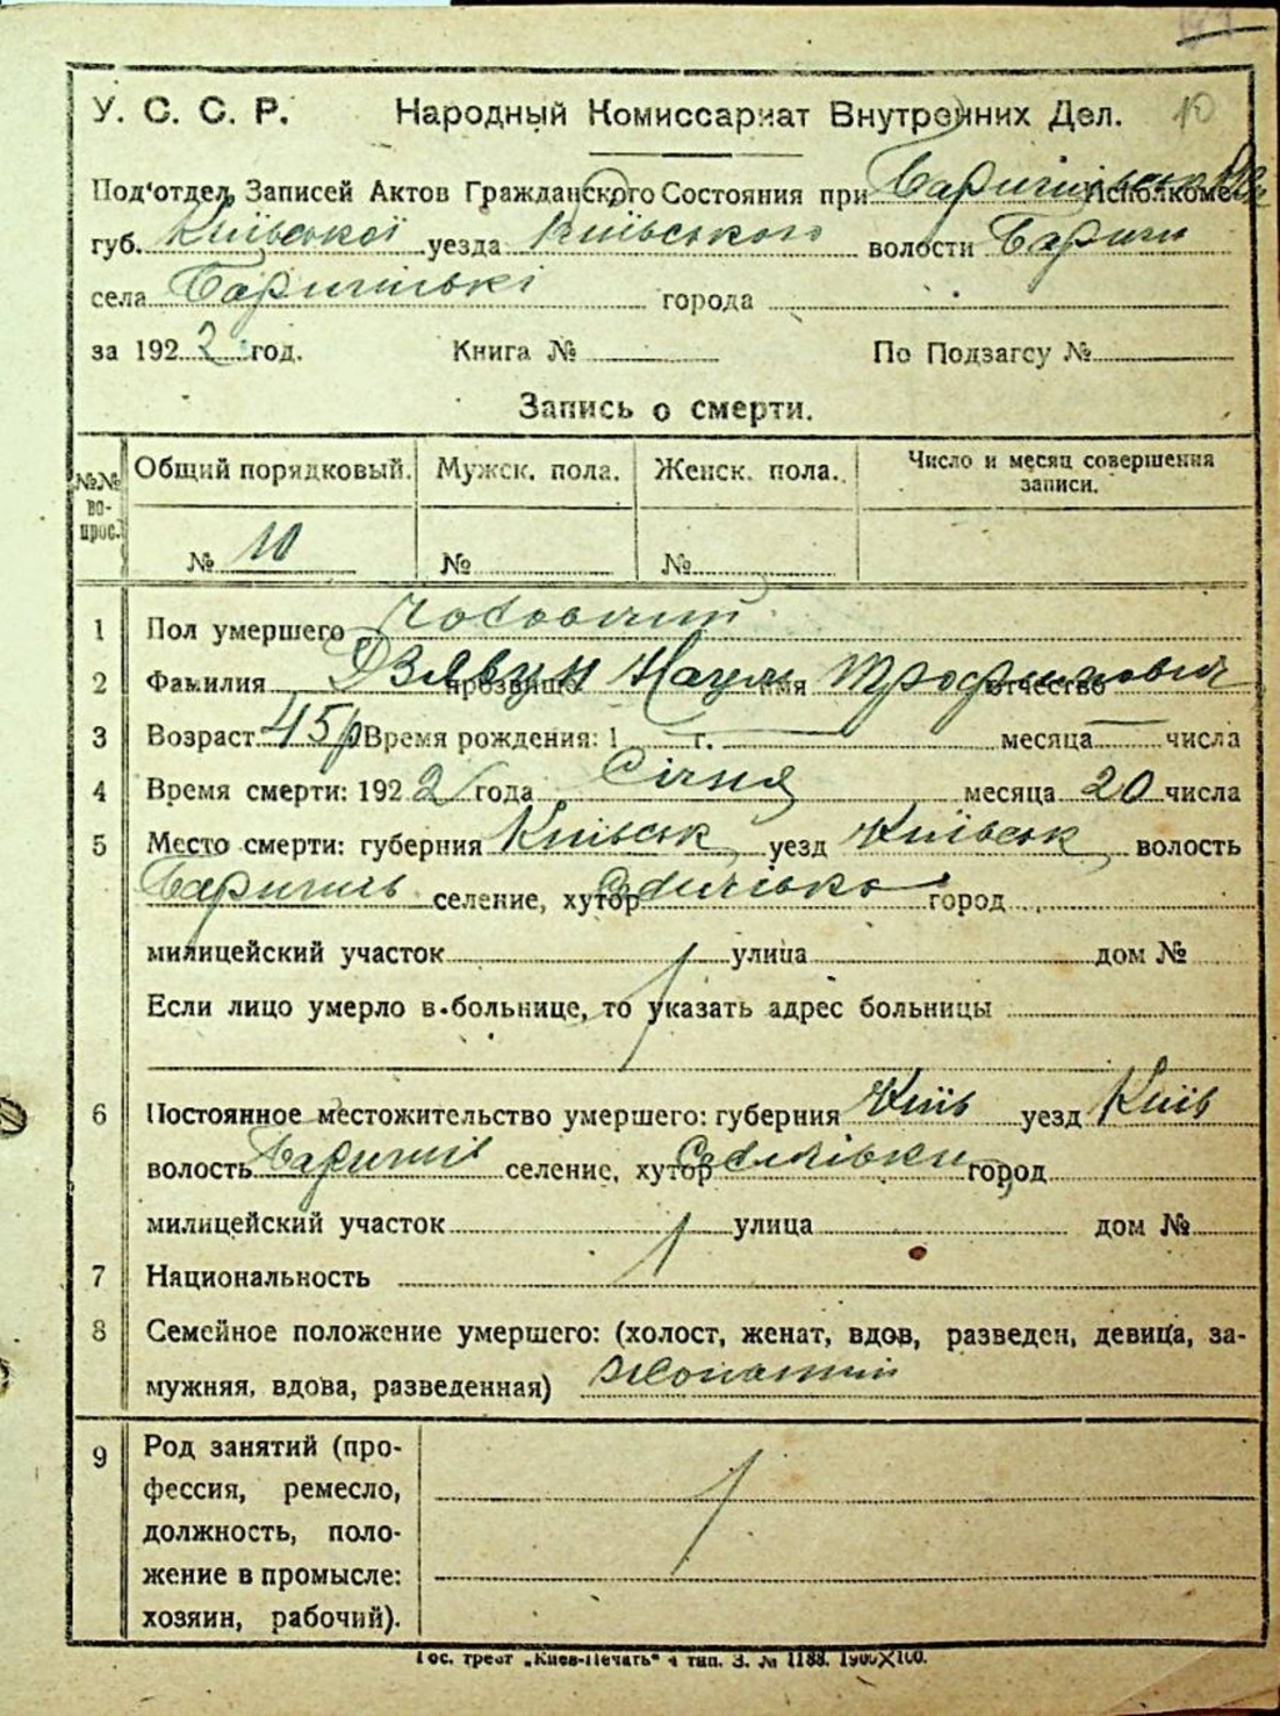 10
У. С. С. Р. Народный Комиссариат Внутренних Дел.
Под'отдел Записей Актов Гражданского Состояния при Исполкоме
губ. Київської уезда Київського волости Бариш
села Баришівкі города
за 1922 год. Книга № По Подзагсу №
Запись о смерти.
№№ вопрос. Общий порядковый. Мужск. пола. Женск. пола. Число и месяц совершения записи.
№ 10 № №
1 Пол умершего чоловічий
2 Фамилия прозвище Имя отчество Наум Трофимович
3 Возраст 45 р Время рождения: 1 г. месяца числа
4 Время смерти: 1922 года Січня месяца 20 числа
5 Место смерти: губерния Київськ уезд Київськ волость
Баришів селение, хутор город
милицейский участок улица дом №
Если лицо умерло в больнице, то указать адрес больницы
6 Постоянное местожительство умершего: губерния Київ уезд Київ
волость Баришів селение, хутор город
милицейский участок улица дом №
7 Национальность
8 Семейное положение умершего: (холост, женат, вдов, разведен, девица, за-
мужняя, вдова, разведенная) жонатий
9 Род занятий (про-
фессия, ремесло,
должность, поло-
жение в промысле:
хозяин, рабочий).
Гос. трест „Киев-Печать“ 4 тип. З. № 1188. 1900X100.